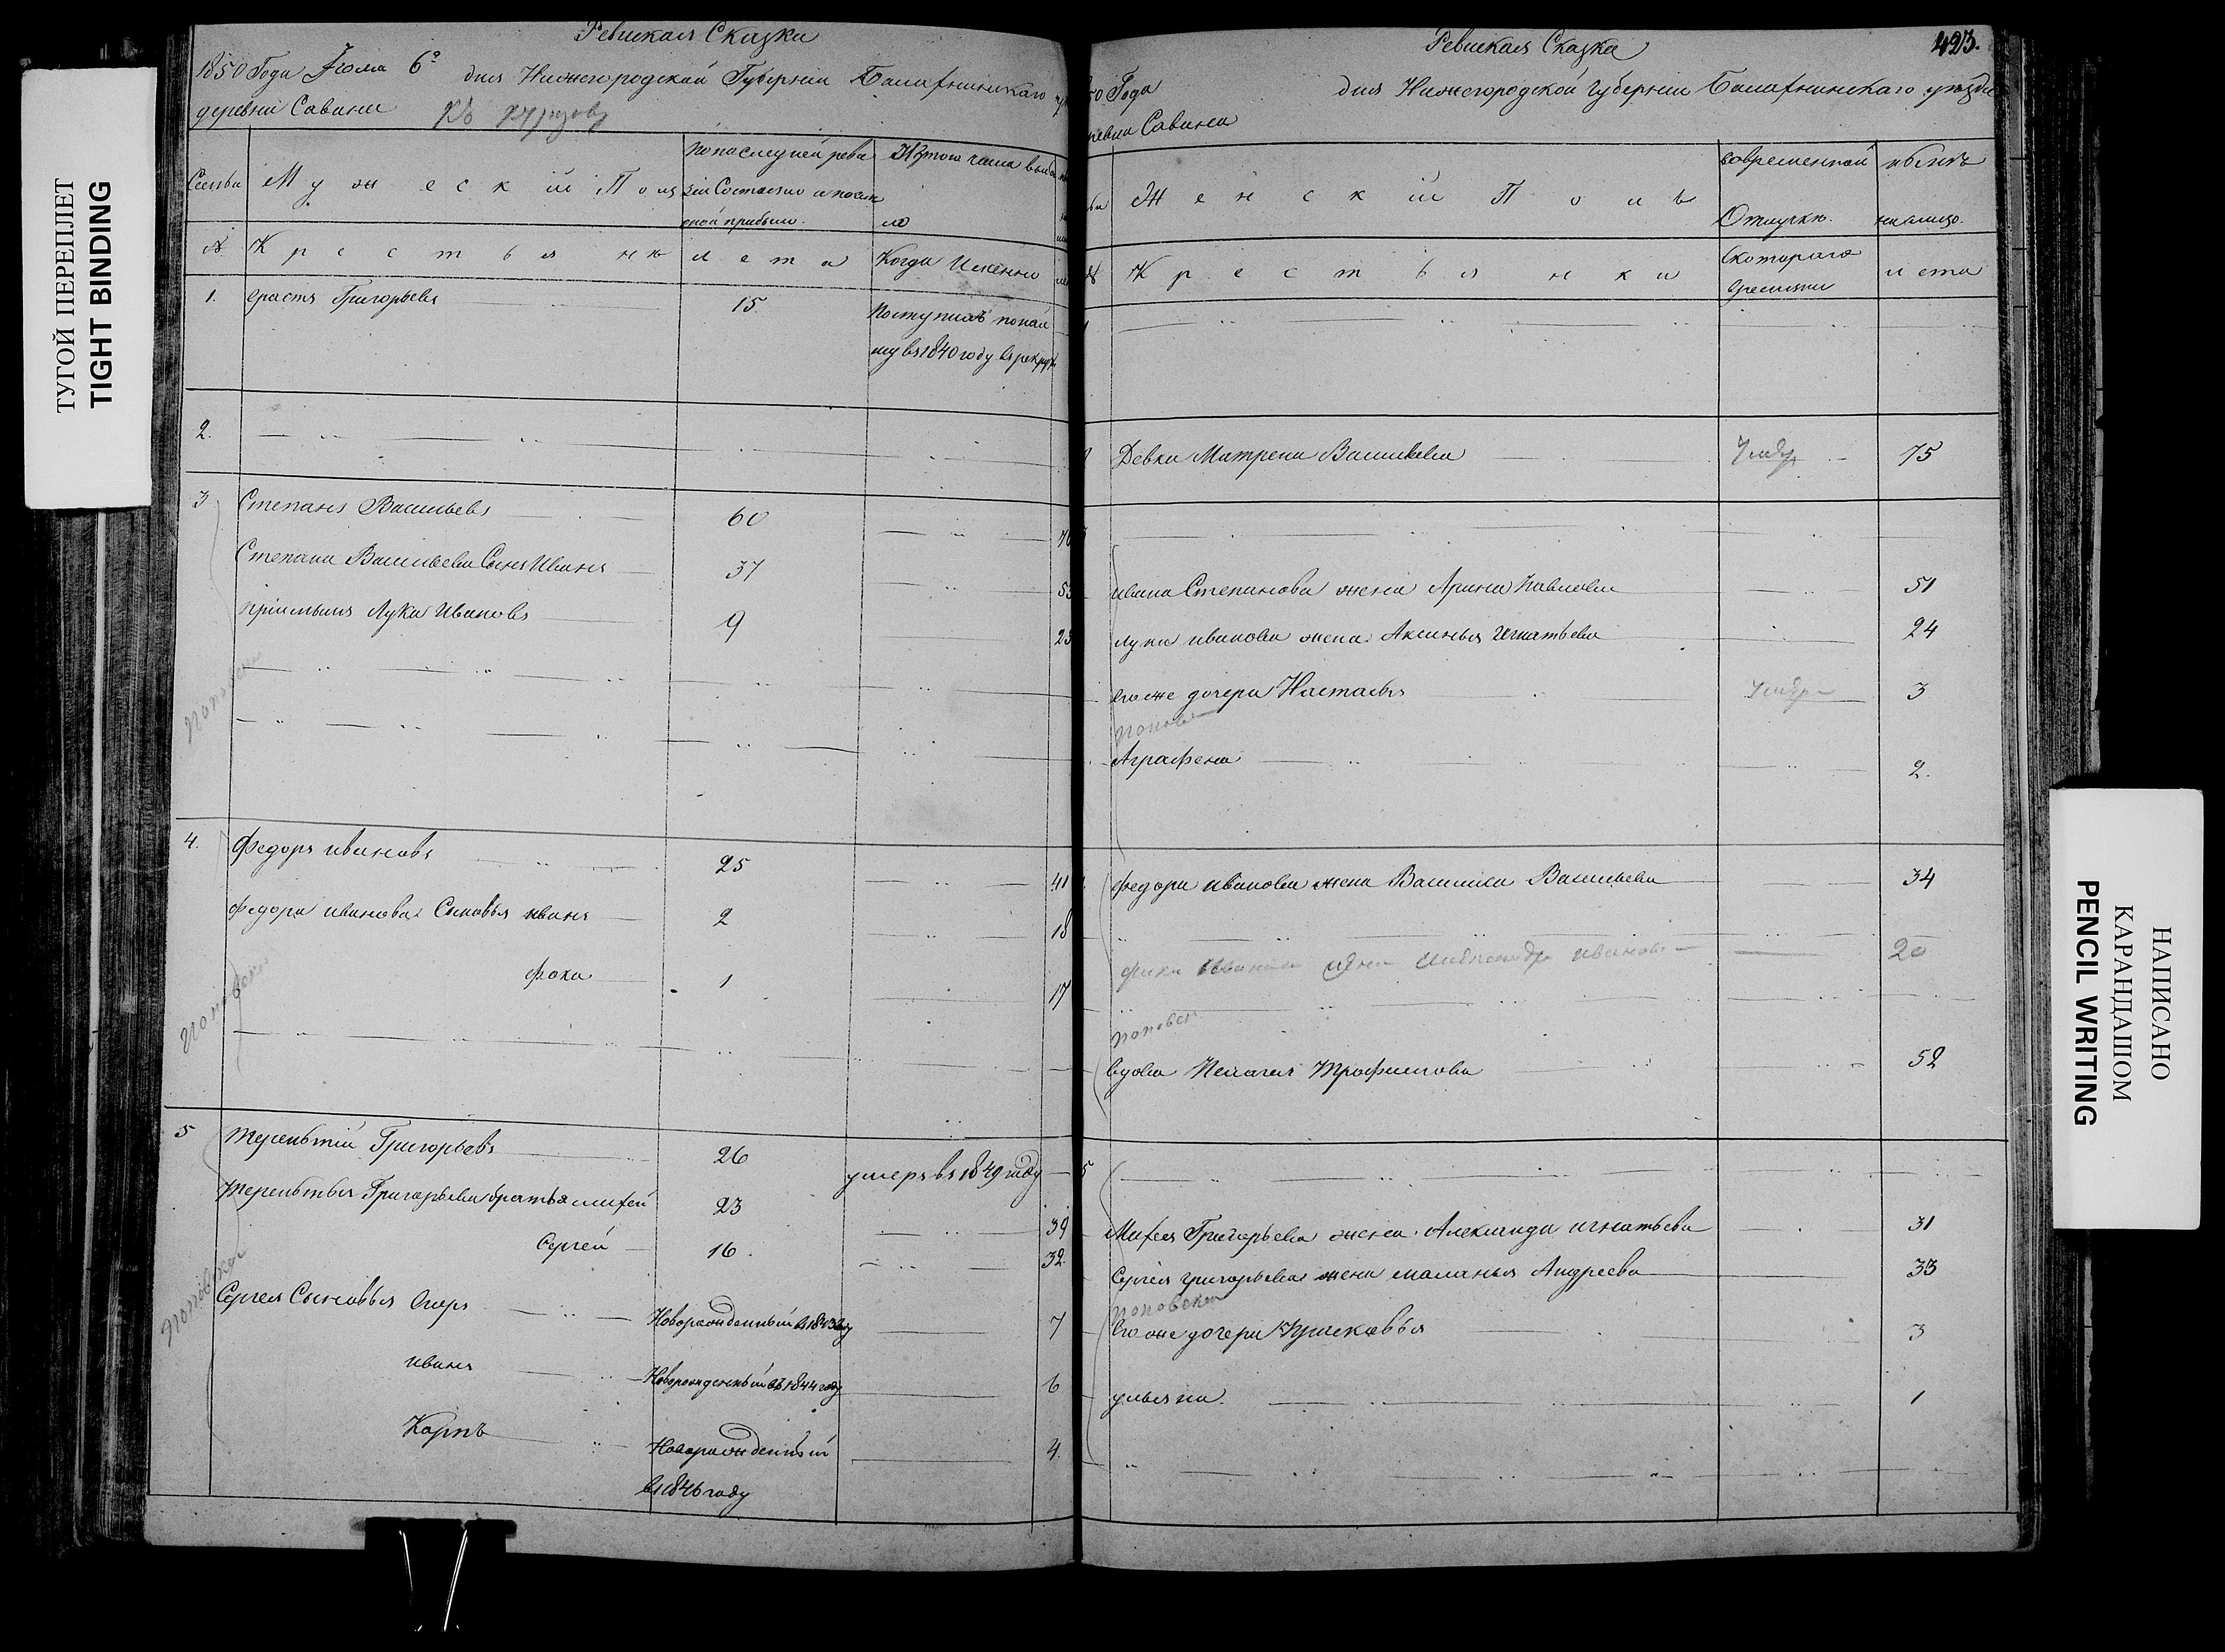 ТУГОЙ ПЕРЕПЛЕТ
TIGHT BINDING
Ревиская Сказка
1850 Года Июля 6го дня Нижегородской Губернии Балахнинскаго
деревни Савина
Семьи
Мужескiй Полъ
По последней реви
зiи Состояло и после
оной прибыло.
Изтого числа выбы
ло
№
Крестьянѣ
лета
Когда Именно
1.
ерастъ Григорьевъ
15.
Поступилъ по най
му въ 1840 году в рекруты
2.
3
Степанъ Васильевъ
60
Степана Васильева Сынъ Иванъ
37
53
прiимышъ Лука Ивановъ
9
4.
Федоръ ивановъ
25
41
Федора иванова Сыновья иванъ
2
18
фока
1
17
поповско
5
Терентiй Григорьевъ
26
умеръ въ 1849 году
Терентья Григорьева братья михей
23
39
Сергей
16.
32.
Сергея Сыновья
Новорожденный въ 1843 году
7
иванъ
Новорожденный въ 1844 году
6
Карпъ
Новорожденный
въ 1846 году
4.
поповско
Ревиская Сказка
423.
50 Года
дня Нижегородской Губернии Балахнинскаго уезда
Савина
Женскiй Полъ
Вовременной
Отлучке.
нынѣ
на лицо.
№
Крестьянки
Скотораго
Времяни
лета
Девка Матрена Васильева
75
ивана Степанова жена Арина Павлова
51
луки иванова жена Аксинья Игнатьева
24
Его же дочери Настасья
3
Аграфена
2.
федора иванова жена Василиса Васильева
34
20
поповск
вдова Пелагея Трофимова
52
5
Михея Григорьева жена Александра игнатьева
31
Сергея григорьева жена маланья Андреева
33
поповско
Его же дочери Прасковья
3
ульяна
1
НАПИСАНО
КАРАНДАШОМ
PENCIL WRITING